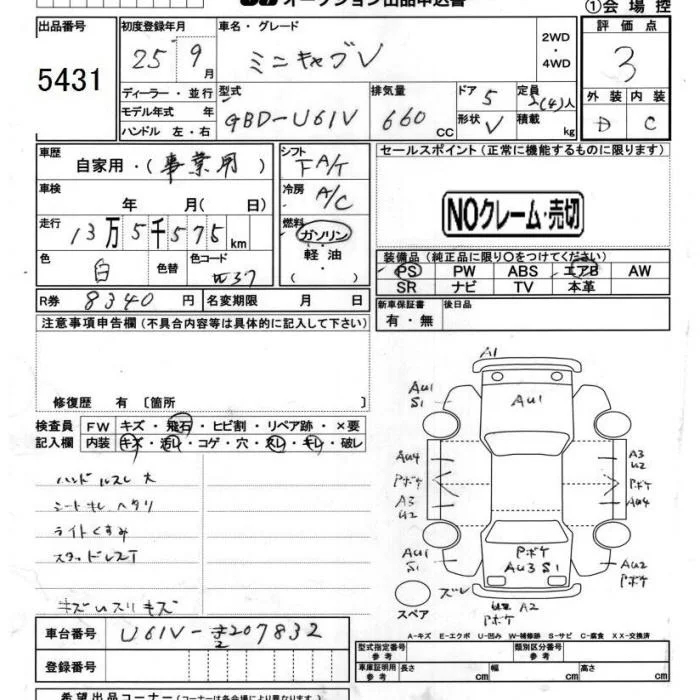 オークション出品申込書
①会場控
出品番号
5431
初度登録年月
25 9月
車名・グレード
ミニキャブV
2WD
・
4WD
評価点
3
ディーラー・並行
モデル年式 年
ハンドル 左・右
型式
GBD-U61V
排気量
660cc
ドア 5
形状 V
定員
2(4)人
積載
kg
外装 内装
D C
車歴
自家用・(事業用)
車検
年 月(日)
走行
13万5千575km
色
白
色替
色コード
W37
シフト
FA/T
冷房
A/C
燃料
ガソリン
・
軽油
・
( )
セールスポイント(正常に機能するものに限ります)
NOクレーム・売切
装備品(純正品に限り○をつけてください)
PS PW ABS エアB AW
SR ナビ TV 本革
R券 8340円 名変期限 月 日
新車保証書
有・無
後日品
注意事項申告欄(不具合内容等は具体的に記入して下さい)
修復歴 有〔箇所
検査員
記入欄
FW キズ・飛石・ヒビ割・リペア跡・×要
内装 キズ・汚レ・コゲ・穴・スレ・キレ・破レ
ハンドルスレ大
シートキレ ヘタリ
ライトくすみ
スタッドレスT
A1
AU1
S1
AU1
AU4
Pボケ
A3
U2
A3
U2
Pボケ
AU4
AU1
S1
Pボケ
AU3 S1
AU2
Pボケ
スペア
ズレ
A2
Pボケ
A-キズ E-エクボ U-凹み W-補修跡 S-サビ C-腐食 XX-交換済
車台番号
U61V-207832
登録番号
型式指定番号
参考
類別区分番号
参考
車庫証明用
参考
長さ cm 幅 cm 高さ cm
希望出品コーナー(コーナーは各会場により異なります。)